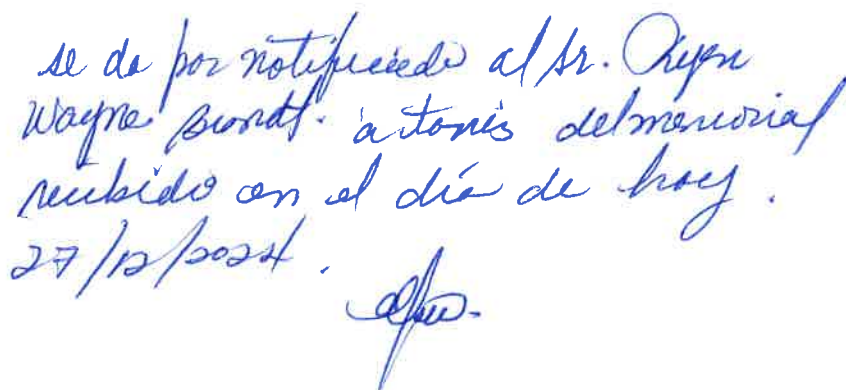 se da por notificado al sr. Ryen
Wayne Brondt. a tavés del memorial
recibido en el día de hoy.
27/12/2024.